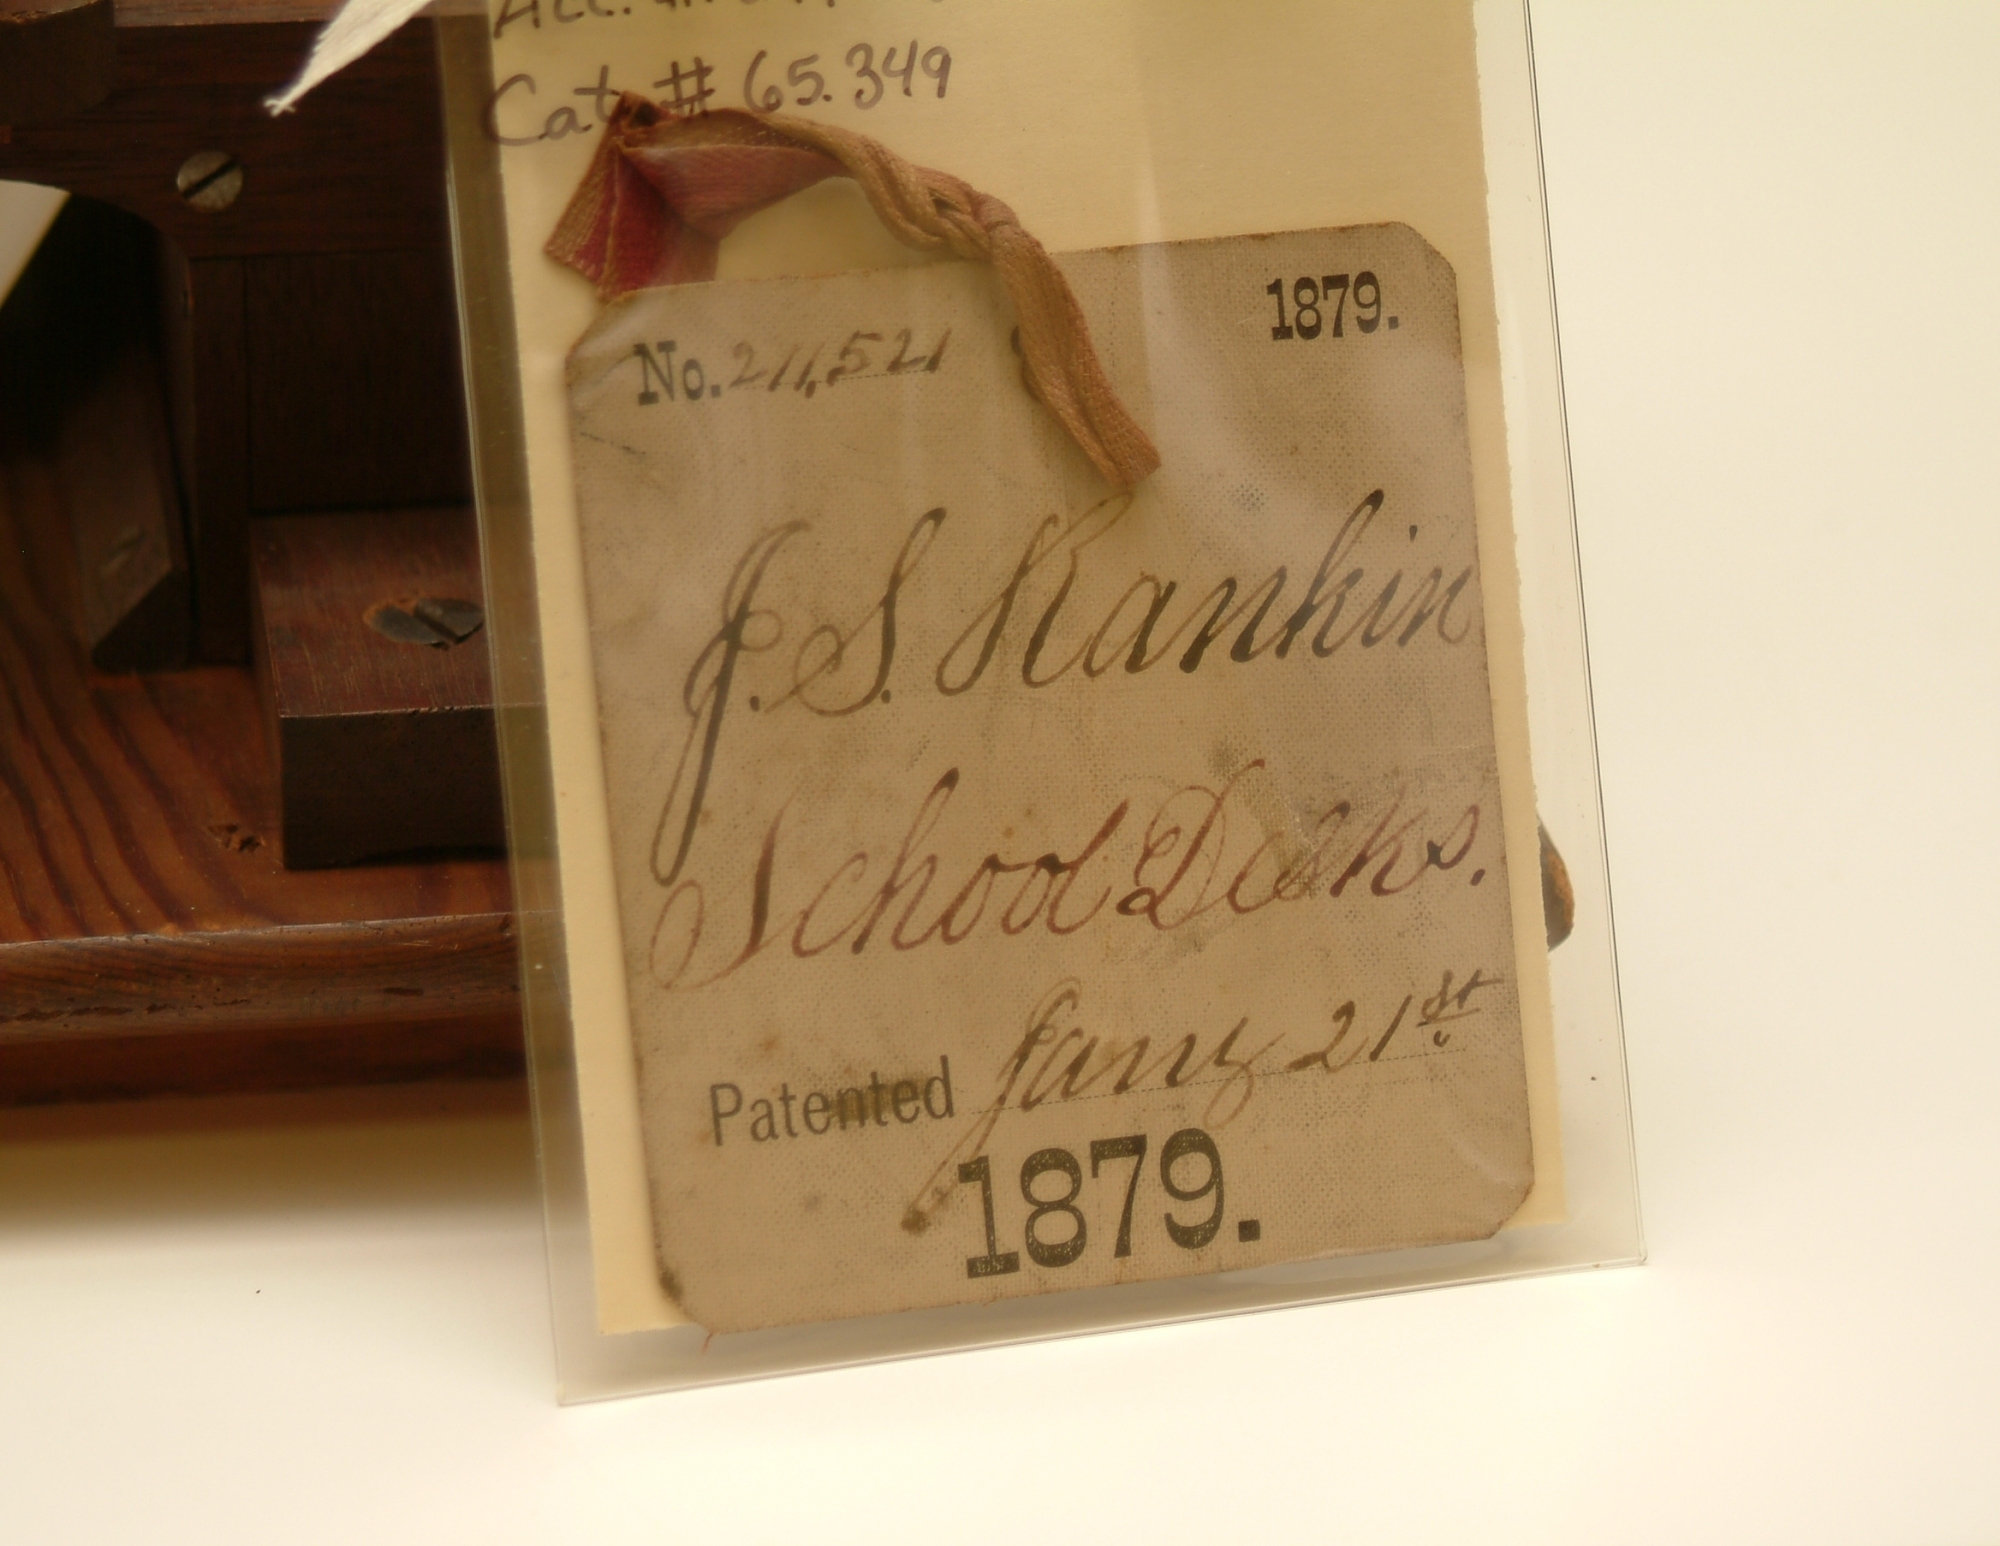 Cat. # 65.349
No. 211,521 1879.
J. S. Rankin
School Desks.
Patented Jany 21st
1879.